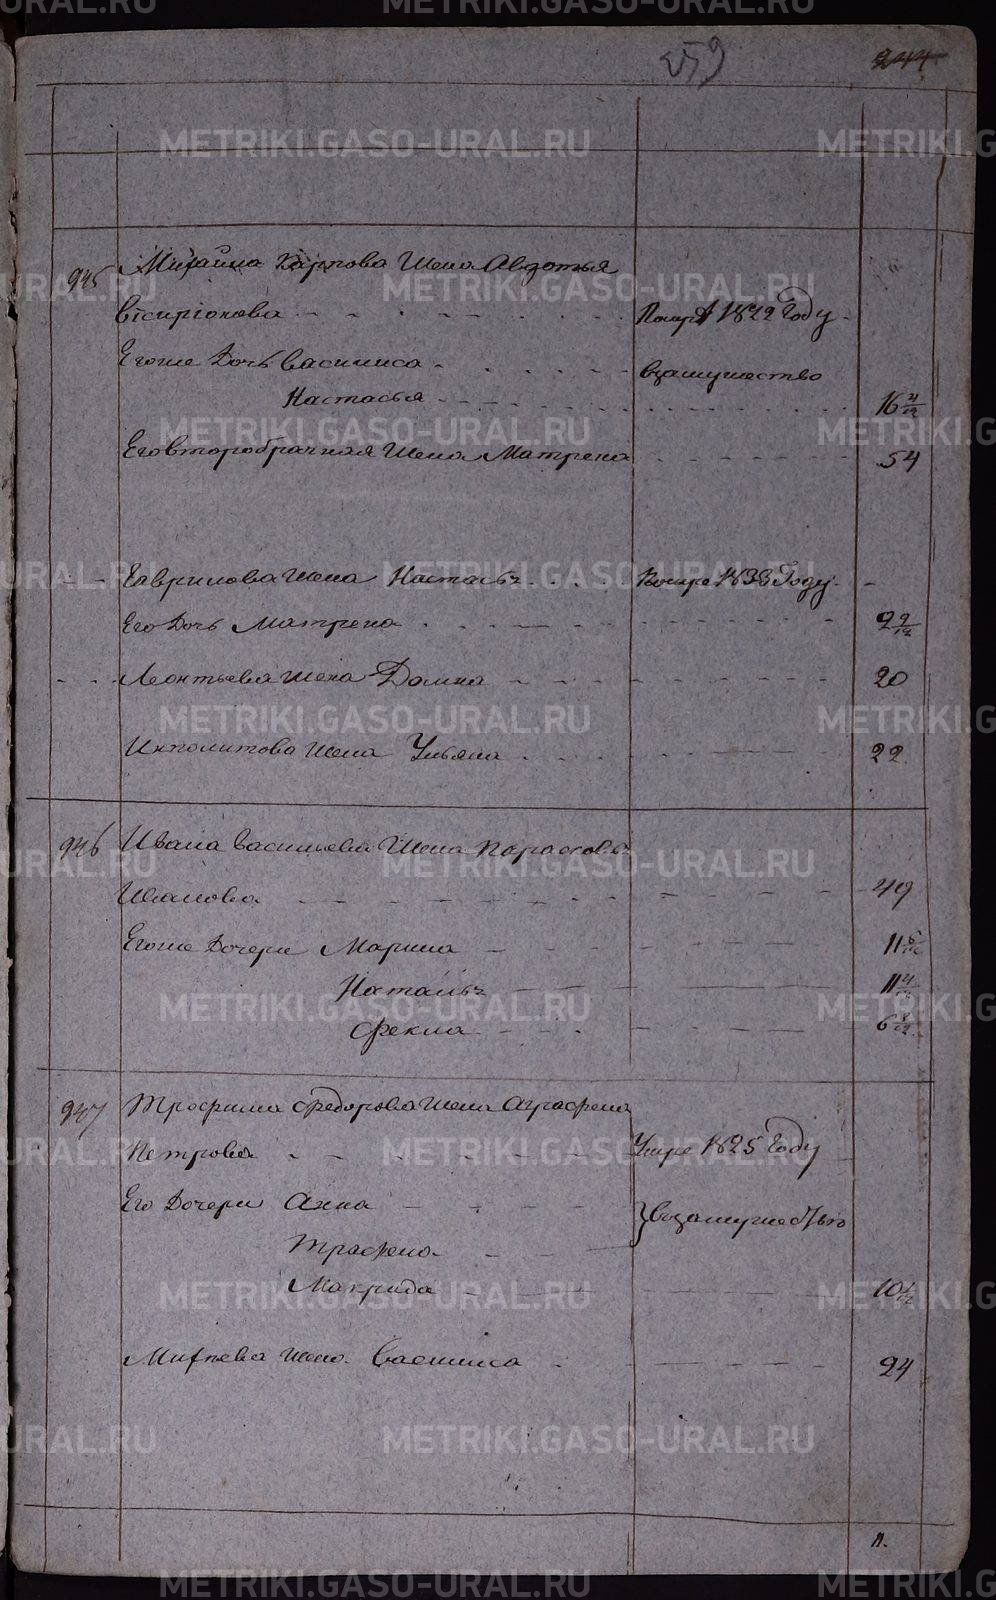 259 244
945 Михаила Карпова жена Авдотья
Виссарионова помре 1822 Году
Егоже дочь Василиса взамужество
Настасья 16 4/12
Его второбрачная жена Матрена 54
Гаврилова жена Настасья помре 1833 Году
Его дочь Матрена 2 2/12
Леонтьева жена Домна 20
Ипполитова жена Ульяна 22
946 Ивана Васильева жена Парасковья
Иванова 49
Егоже дочери Марина 11
Наталья 11 4/12
Фекла 6
947 Трофима Федорова жена Аграфена
Петрова Умре 1825 Году
Его дочери Анна взамужество
Графена
Макрида 10
Михеева жена Василиса 24
METRIKI.GASO-URAL.RU